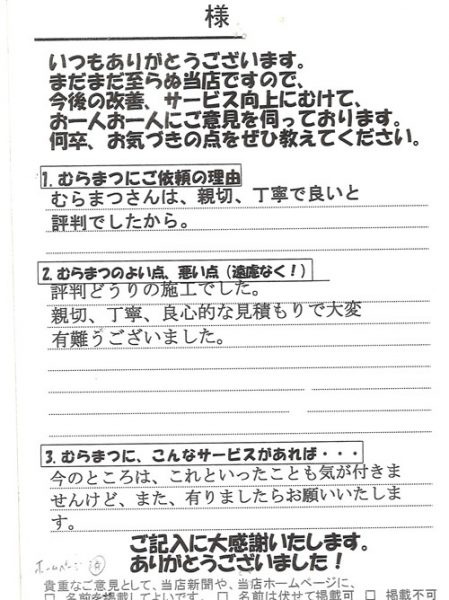 様
いつもありがとうございます。
まだまだ至らぬ当店ですので、
今後の改善、サービス向上にむけて、
お一人お一人にご意見を伺っております。
何卒、お気づきの点をぜひ教えてください。
1. むらまつにご依頼の理由
むらまつさんは、親切、丁寧で良いと
評判でしたから。
2. むらまつのよい点、悪い点（遠慮なく！）
評判どうりの施工でした。
親切、丁寧、良心的な見積もりで大変
有難うございました。
3. むらまつに、こんなサービスがあれば・・・
今のところは、これといったことも気が付きま
せんけど、また、有りましたらお願いいたしま
す。
ご記入に大感謝いたします。
ありがとうございました！
ホームページ
貴重なご意見として、当店新聞や、当店ホームページに、
□ 名前を掲載してよいです。 □ 名前は伏せて掲載可 □ 掲載不可